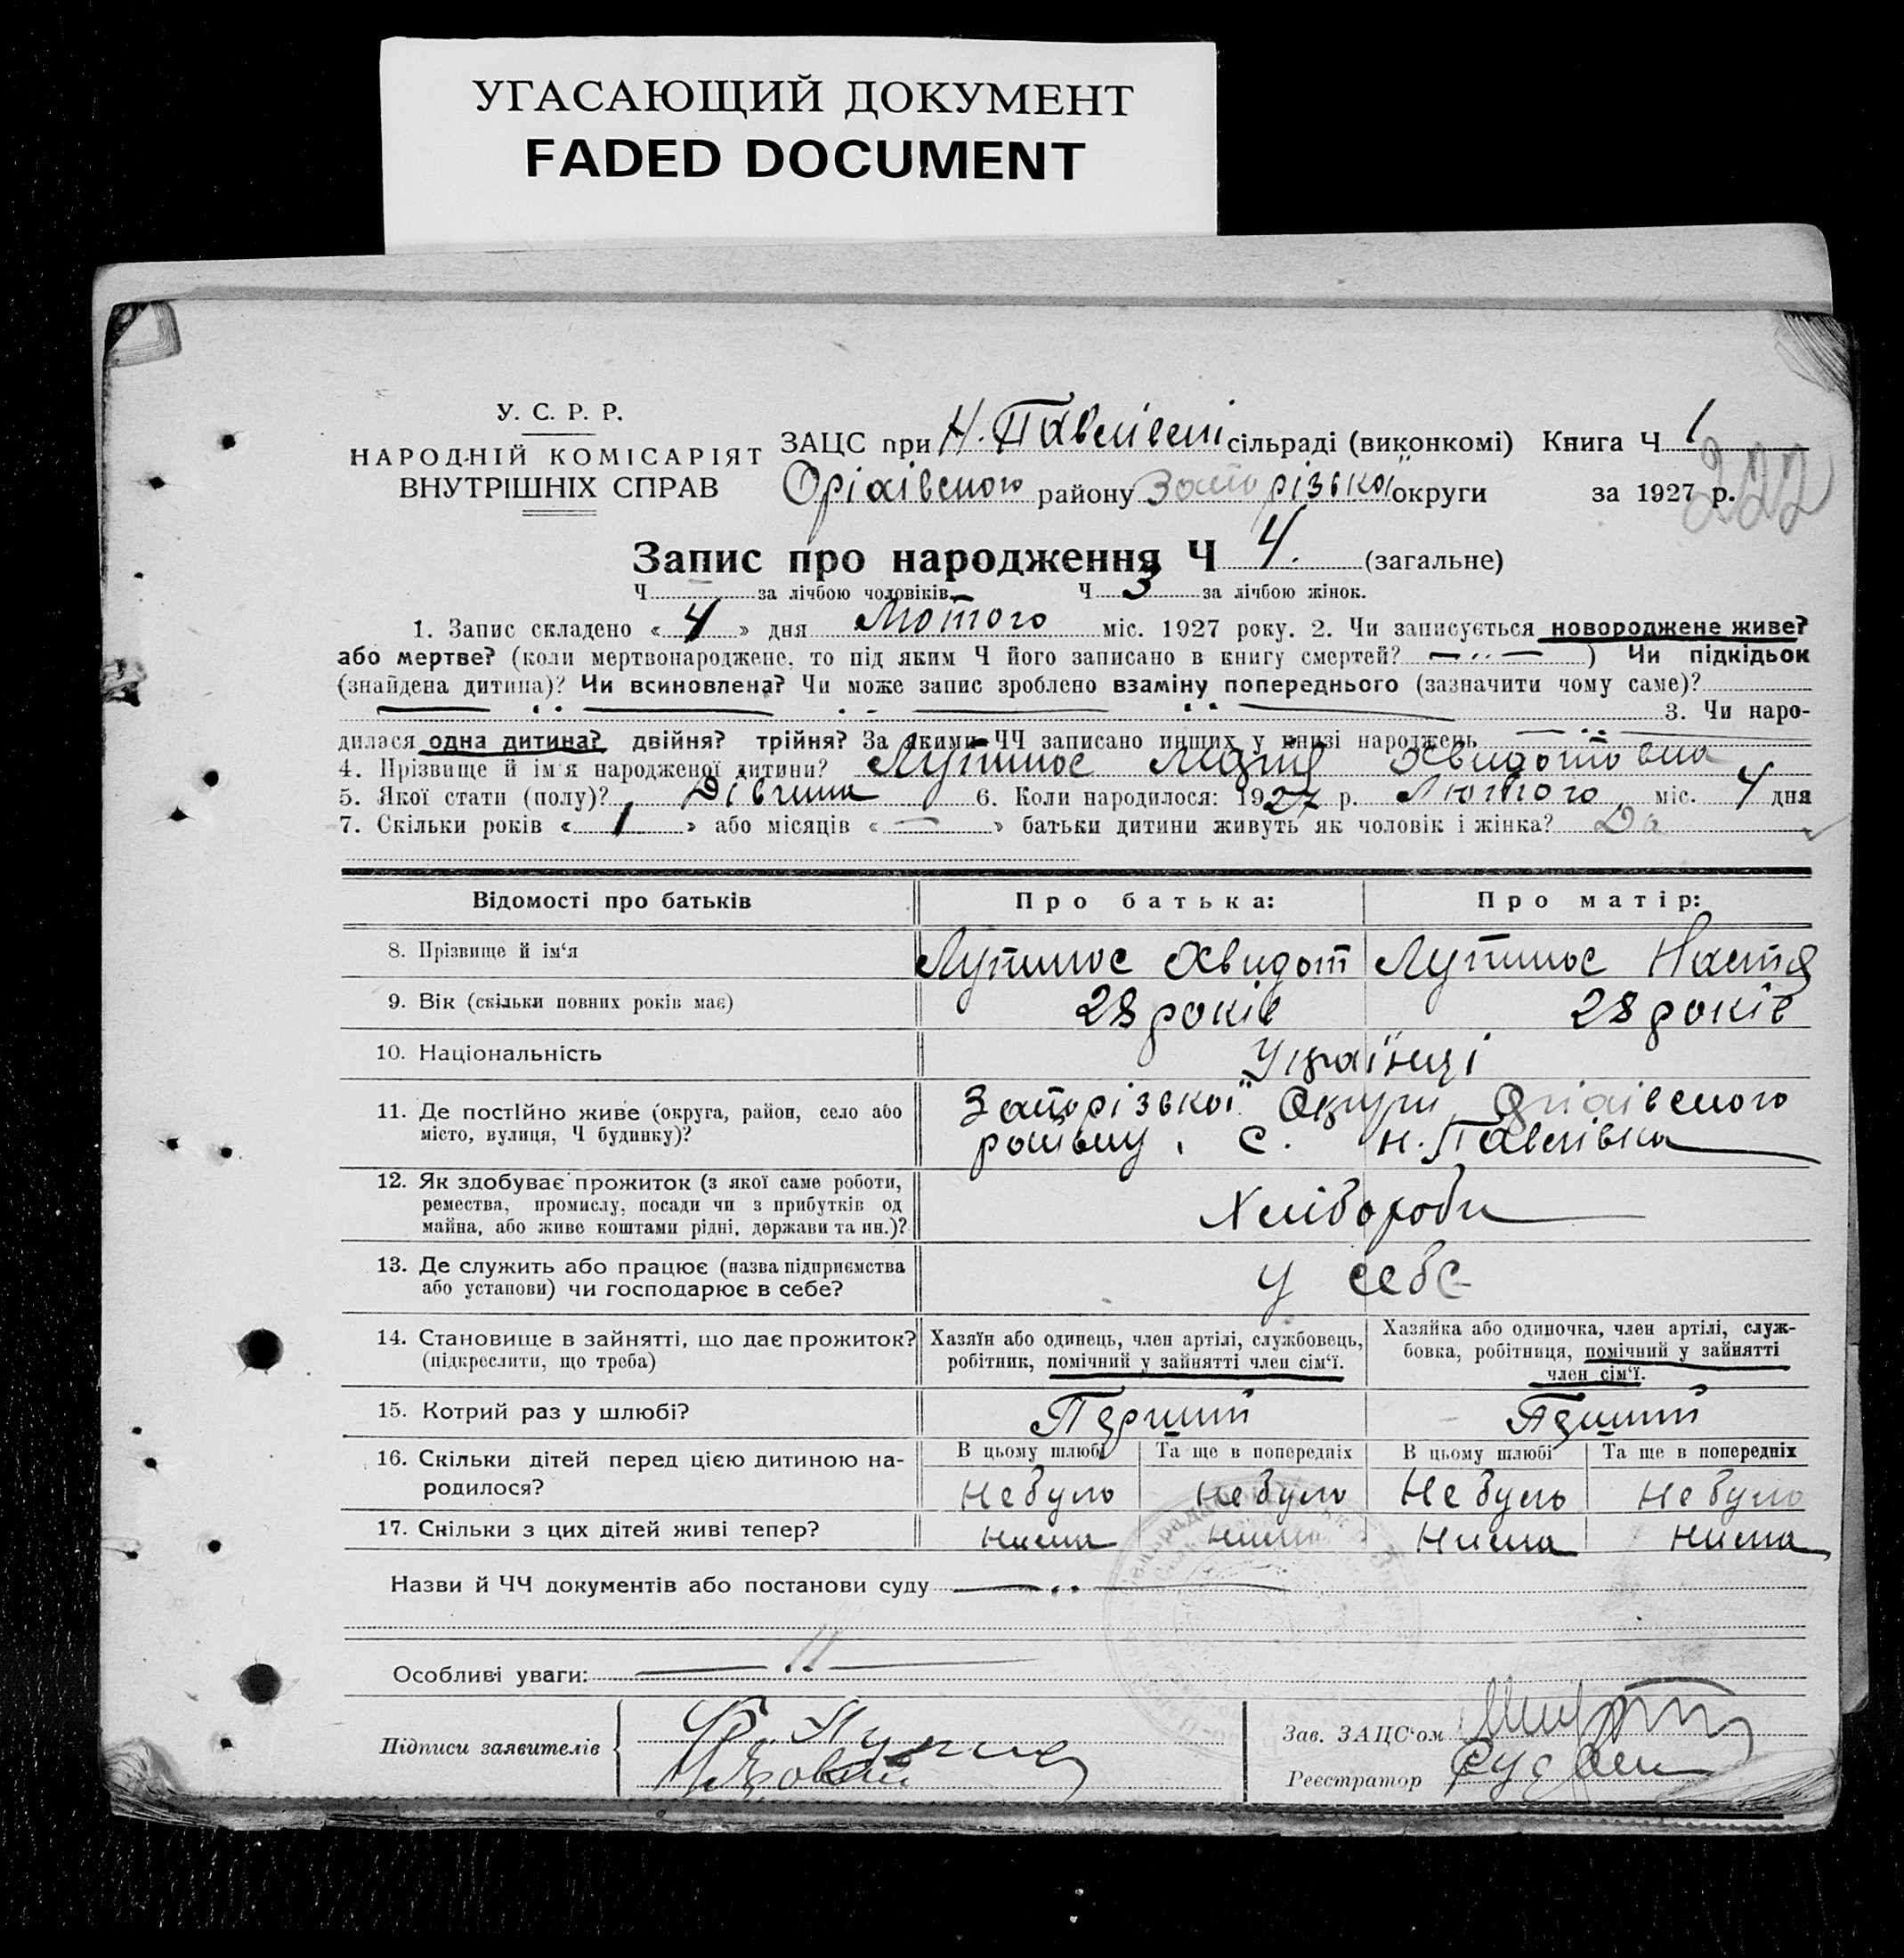 УГАСАЮЩИЙ ДОКУМЕНТ
FADED DOCUMENT
У. С. Р. Р.
НАРОДНІЙ КОМІСАРІЯТ
ВНУТРІШНІХ СПРАВ
ЗАЦС при Н. Павлівскі сільраді (виконкомі) Книга Ч 1
Оріхівського району Запорізької округи за 1927 р.
222
Запис про народження Ч 4. (загальне)
Ч — за лічбою чоловіків. Ч 3 за лічбою жінок.
1. Запис складено « 4 » дня Лютого міс. 1927 року. 2. Чи записується новороджене живе?
або мертве? (коли мертвонароджене, то під яким Ч його записано в книгу смертей? —··— ) Чи підкідьок
(знайдена дитина)? Чи всиновлена? Чи може запис зроблено взаміну попереднього (зазначити чому саме)?
3. Чи наро-
дилася одна дитина? двійня? трійня? За якими ЧЧ записано инших у книзі народжень
4. Прізвище й ім'я народженої дитини? Хвидотовна
5. Якої стати (полу)? Дівчина 6. Коли народилося: 1927 р. Лютого міс. 4 дня
7. Скільки років « 1 » або місяців « — » батьки дитини живуть як чоловік і жінка? Да
Відомості про батьків Про батька: Про матір:
8. Прізвище й ім'я Хвидот Настя
9. Вік (скільки повних років має) 28 років 28 років
10. Національність Українці
11. Де постійно живе (округа, район, село або Запорізької Округи, Оріхівського
місто, вулиця, Ч будинку)? району, с. Н. Павлівка
12. Як здобуває прожиток (з якої саме роботи,
ремества, промислу, посади чи з прибутків од Хлібороби
майна, або живе коштами рідні, держави та ин.)?
13. Де служить або працює (назва підприємства у себе
або установи) чи господарює в себе?
14. Становище в зайнятті, що дає прожиток? Хазяїн або одинець, член артілі, службовець, Хазяйка або одиночка, член артілі, служ-
(підкреслити, що треба) робітник, помічний у зайнятті член сім'ї. бовка, робітниця, помічний у зайнятті
член сім'ї.
15. Котрий раз у шлюбі? Перший Перший
В цьому шлюбі Та ще в попередніх В цьому шлюбі Та ще в попередніх
16. Скільки дітей перед цією дитиною на-
родилося? Не було Не було Не було Не було
17. Скільки з цих дітей живі тепер? Нима Нима Нима Нима
Назви й ЧЧ документів або постанови суду
Особливі уваги:
Підписи заявителів
Зав. ЗАЦС'ом
Реєстратор